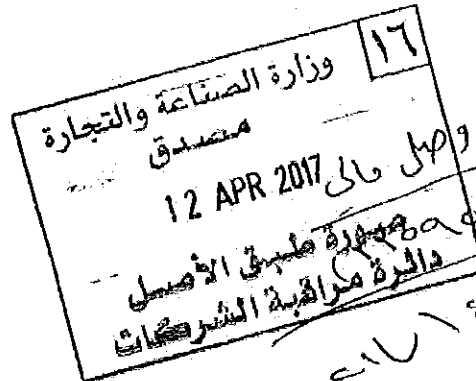 ١٦
وزارة الصناعة والتجارة
مصدق
12 APR 2017
وصل مالي
صورة طبق الأصل
دائرة مراقبة الشركات